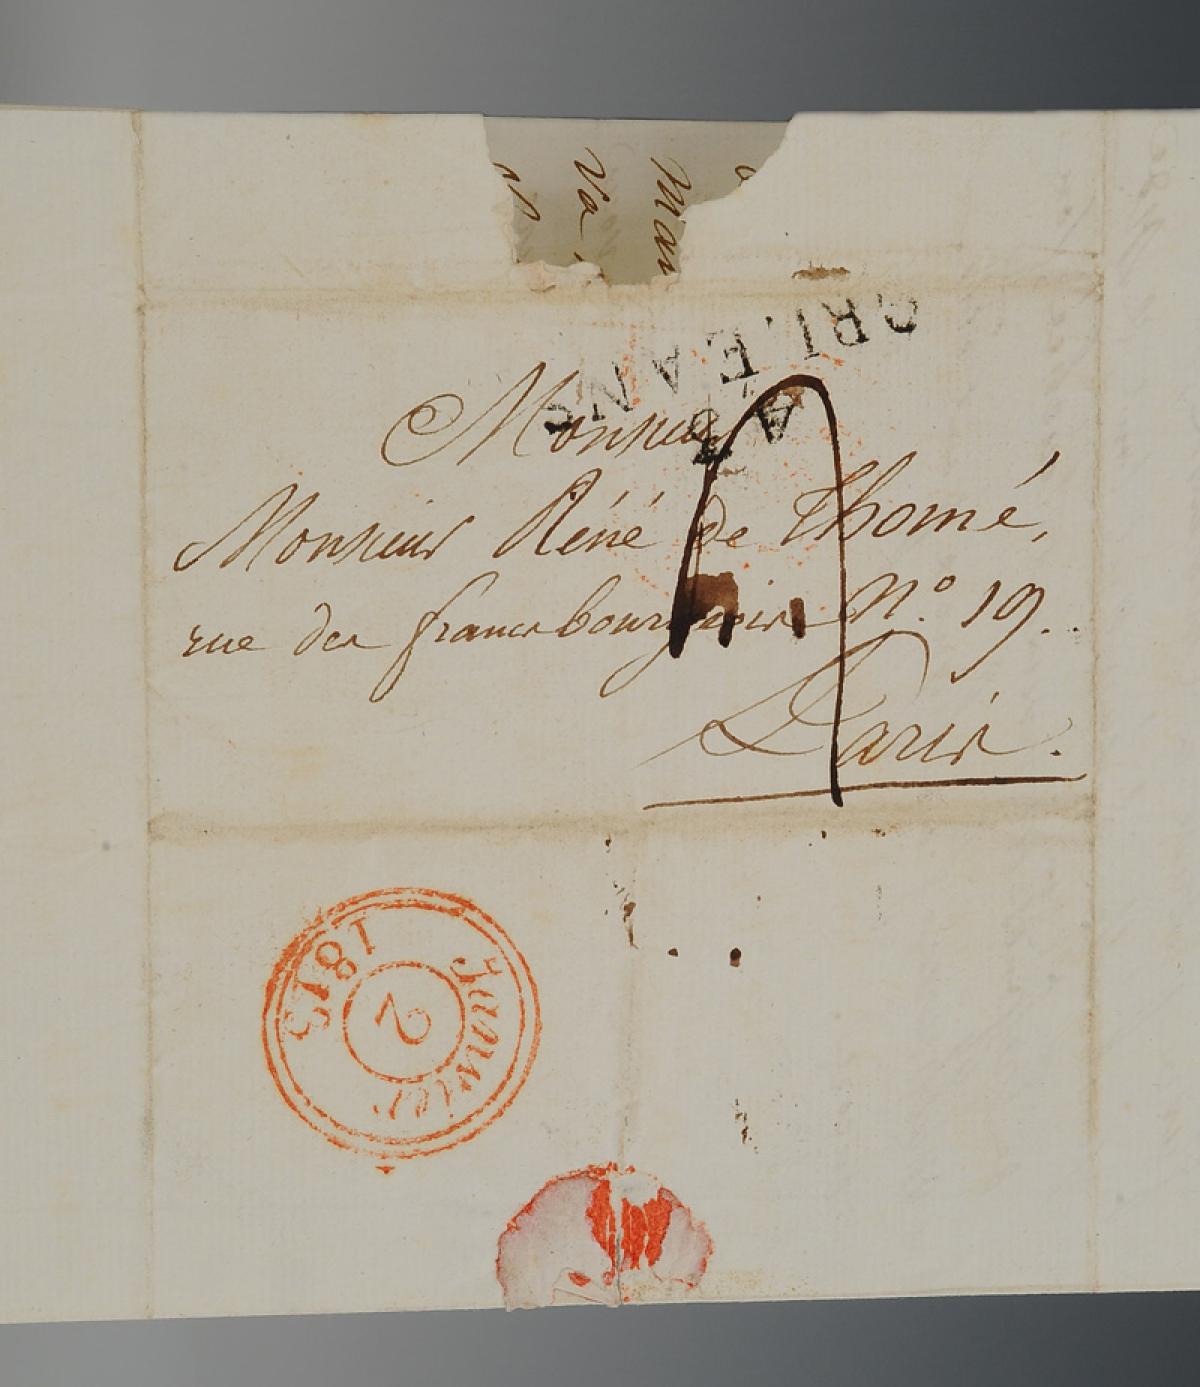 Va
Mar
ORLEANS
Monsieur
Monsieur Réné de Thomé,
rue des francs bourgeois N.º 19.
Paris.
1813
2
Janvier